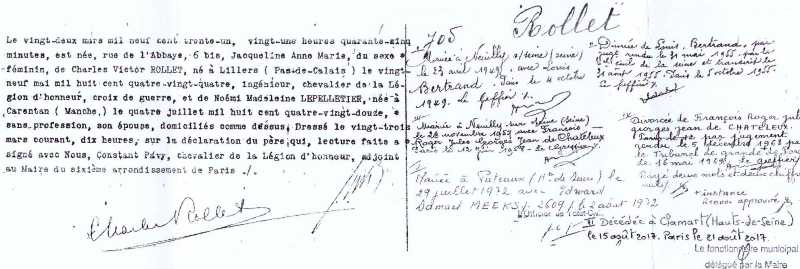 Le vingt-deux mars mil neuf cent trente-un, vingt-une heures quarante-cinq
minutes, est née, rue de l'Abbaye, 6 bis, Jacqueline Anne Marie, du sexe
féminin, de Charles Victor ROLLET, né à Lillers (Pas-de-Calais) le vingt-
neuf mai mil huit cent quatre-vingt-quatre, ingénieur, chevalier de la Lé-
gion d'honneur, croix de guerre, et de Noémi Madeleine LEPELLETIER, née à
Carentan (Manche,) le quatre juillet mil huit cent quatre-vingt-douze,
sans profession, son épouse, domiciliés comme dessus. Dressé le vingt-trois
mars courant, dix heures, sur la déclaration du père qui, lecture faite a
signé avec Nous, Constant Pavy, chevalier de la Légion d'honneur, adjoint
au Maire du sixième arrondissement de Paris -/.
Charles Rollet
705
Rollet
Mariée à Neuilly s/Seine (Seine)
le 23 avril 1949 avec Louis
Bertrand. Paris le 4 octobre
1949. Le greffier
Mariée à Neuilly sur Seine (Seine)
le 28 novembre 1957 avec François
Roger Jules Georges Jean de Chateleux
Paris le 12 1958. Le greffier
Mariée à Puteaux (Hts de Seine) le
29 juillet 1972 avec Edward
Samuel MEEKS / 2609 / 2 août 1972
L'Officier de l'état-civil
Divorcée de Louis Bertrand, par
jugt rendu le 31 mai 1955 par le
Tribunal de la Seine et transcrit le
août 1955. Paris le 5 octobre 1955.
Le greffier
Divorcée de François Roger Jules
Georges Jean de CHATELEUX
par jugement
rendu le 5 décembre 1968 par
le Tribunal de grande de Paris
le 16 mai 1969 Le greffier
Rayé deux mots et deux chiffres
nuls
+ instance
Renvoi approuvé
Décédée à Clamart (Hauts-de-Seine)
le 15 août 2017. Paris le 21 août 2017.
Le fonctionnaire municipal
délégué par la Maire